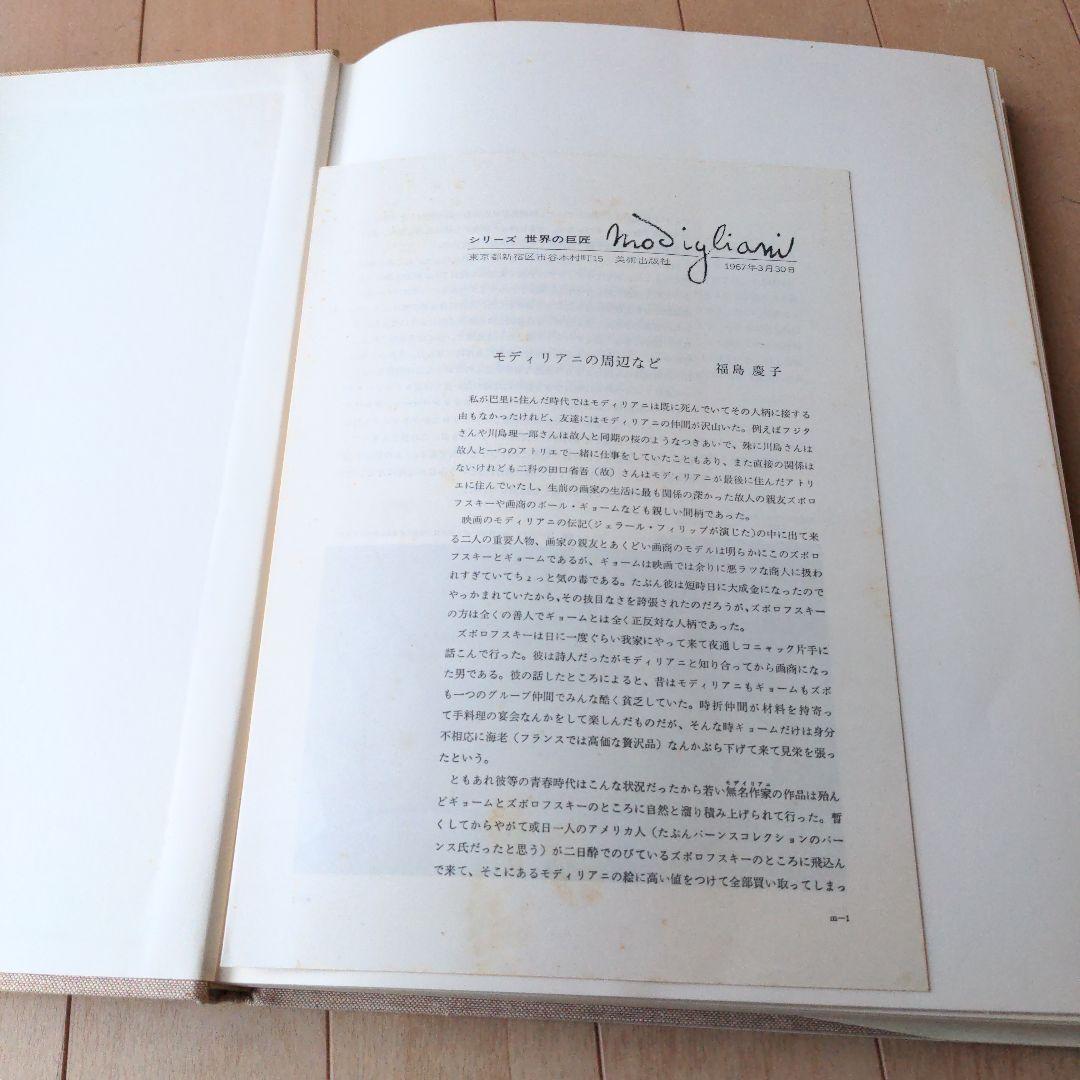 シリーズ 世界の巨匠 modigliani
東京都新宿区市谷本村町15 美術出版社 1967年3月30日
モディリアニの周辺など 福島慶子
私が巴里に住んだ時代ではモディリアニは既に死んでいてその人柄に接する
由もなかったけれど、友達にはモディリアニの仲間が沢山いた。例えばフジタ
さんや川島理一郎さんは故人と同期の桜のようなつきあいで、殊に川島さんは
故人と一つのアトリエで一緒に仕事をしていたこともあり、また直接の関係は
ないけれども二科の田口省吾（故）さんはモディリアニが最後に住んだアトリ
エに住んでいたし、生前の画家の生活に最も関係の深かった故人の親友ズボロ
フスキーや画商のポール・ギョームなども親しい間柄であった。
映画のモディリアニの伝記（ジェラール・フィリップが演じた）の中に出て来
る二人の重要人物、画家の親友とあくどい画商のモデルは明らかにこのズボロ
フスキーとギョームであるが、ギョームは映画では余りに悪ラツな商人に扱わ
れすぎていてちょっと気の毒である。たぶん彼は短時日に大成金になったので
やっかまれていたから、その抜目なさを誇張されたのだろうが、ズボロフスキー
の方は全くの善人でギョームとは全く正反対な人柄であった。
ズボロフスキーは日に一度ぐらい我家にやって来て夜通しコニャック片手に
話こんで行った。彼は詩人だったがモディリアニと知り合ってから画商になっ
た男である。彼の話したところによると、昔はモディリアニもギョームもズボ
も一つのグループ仲間でみんな酷く貧乏していた。時折仲間が材料を持寄っ
て手料理の宴会なんかをして楽しんだものだが、そんな時ギョームだけは身分
不相応に海老（フランスでは高価な贅沢品）なんかぶら下げて来て見栄を張っ
たという。
ともあれ彼等の青春時代はこんな状況だったから若い無名作家モディリアニの作品は殆ん
どギョームとズボロフスキーのところに自然と溜り積み上げられて行った。暫
くしてからやがて或日一人のアメリカ人（たぶんバーンスコレクションのバー
ンス氏だったと思う）が二日酔でのびているズボロフスキーのところに飛込ん
で来て、そこにあるモディリアニの絵に高い値をつけて全部買い取ってしまっ
m—1